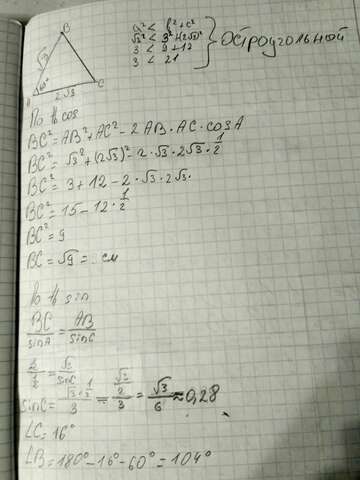 B
√3
60°
A
2√3
C
a² < b² + c²
√3² < 3² + (2√3)²
3 < 9 + 12
3 < 21
Остроугольной
По th cos
BC² = AB² + AC² - 2 AB · AC · cosA
BC² = √3² + (2√3)² - 2 · √3 · 2√3 · 1/2
BC² = 3 + 12 - 2 · √3 · 2√3 ·
BC² = 15 - 12 · 1/2
BC² = 9
BC = √9 = см
По th sin
BC/sinA = AB/sinC
= √3/sinC
sinC = = = √3/6 ≈ 0,28
∠C = 16°
∠B = 180° - 16° - 60° = 104°